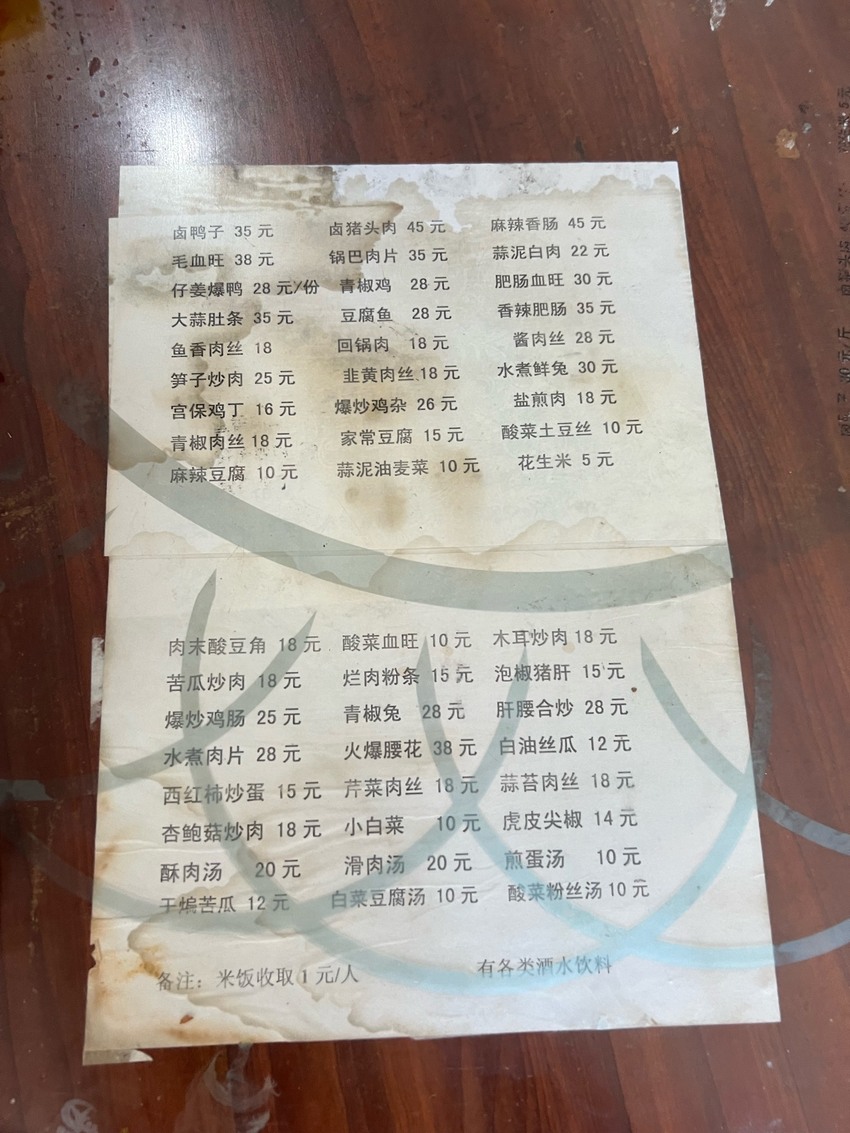 卤鸭子 35 元 卤猪头肉 45 元 麻辣香肠 45 元
毛血旺 38 元 锅巴肉片 35 元 蒜泥白肉 22 元
仔姜爆鸭 28 元/份 青椒鸡 28 元 肥肠血旺 30 元
大蒜肚条 35 元 豆腐鱼 28 元 香辣肥肠 35 元
鱼香肉丝 18 回锅肉 18 元 酱肉丝 28 元
笋子炒肉 25 元 韭黄肉丝 18 元 水煮鲜兔 30 元
宫保鸡丁 16 元 爆炒鸡杂 26 元 盐煎肉 18 元
青椒肉丝 18 元 家常豆腐 15 元 酸菜土豆丝 10 元
麻辣豆腐 10 元 蒜泥油麦菜 10 元 花生米 5 元
肉末酸豆角 18 元 酸菜血旺 10 元 木耳炒肉 18 元
苦瓜炒肉 18 元 烂肉粉条 15 元 泡椒猪肝 15 元
爆炒鸡肠 25 元 青椒兔 28 元 肝腰合炒 28 元
水煮肉片 28 元 火爆腰花 38 元 白油丝瓜 12 元
西红柿炒蛋 15 元 芹菜肉丝 18 元 蒜苔肉丝 18 元
杏鲍菇炒肉 18 元 小白菜 10 元 虎皮尖椒 14 元
酥肉汤 20 元 滑肉汤 20 元 煎蛋汤 10 元
干煸苦瓜 12 元 白菜豆腐汤 10 元 酸菜粉丝汤 10 元
备注：米饭收取 1 元/人 有各类酒水饮料